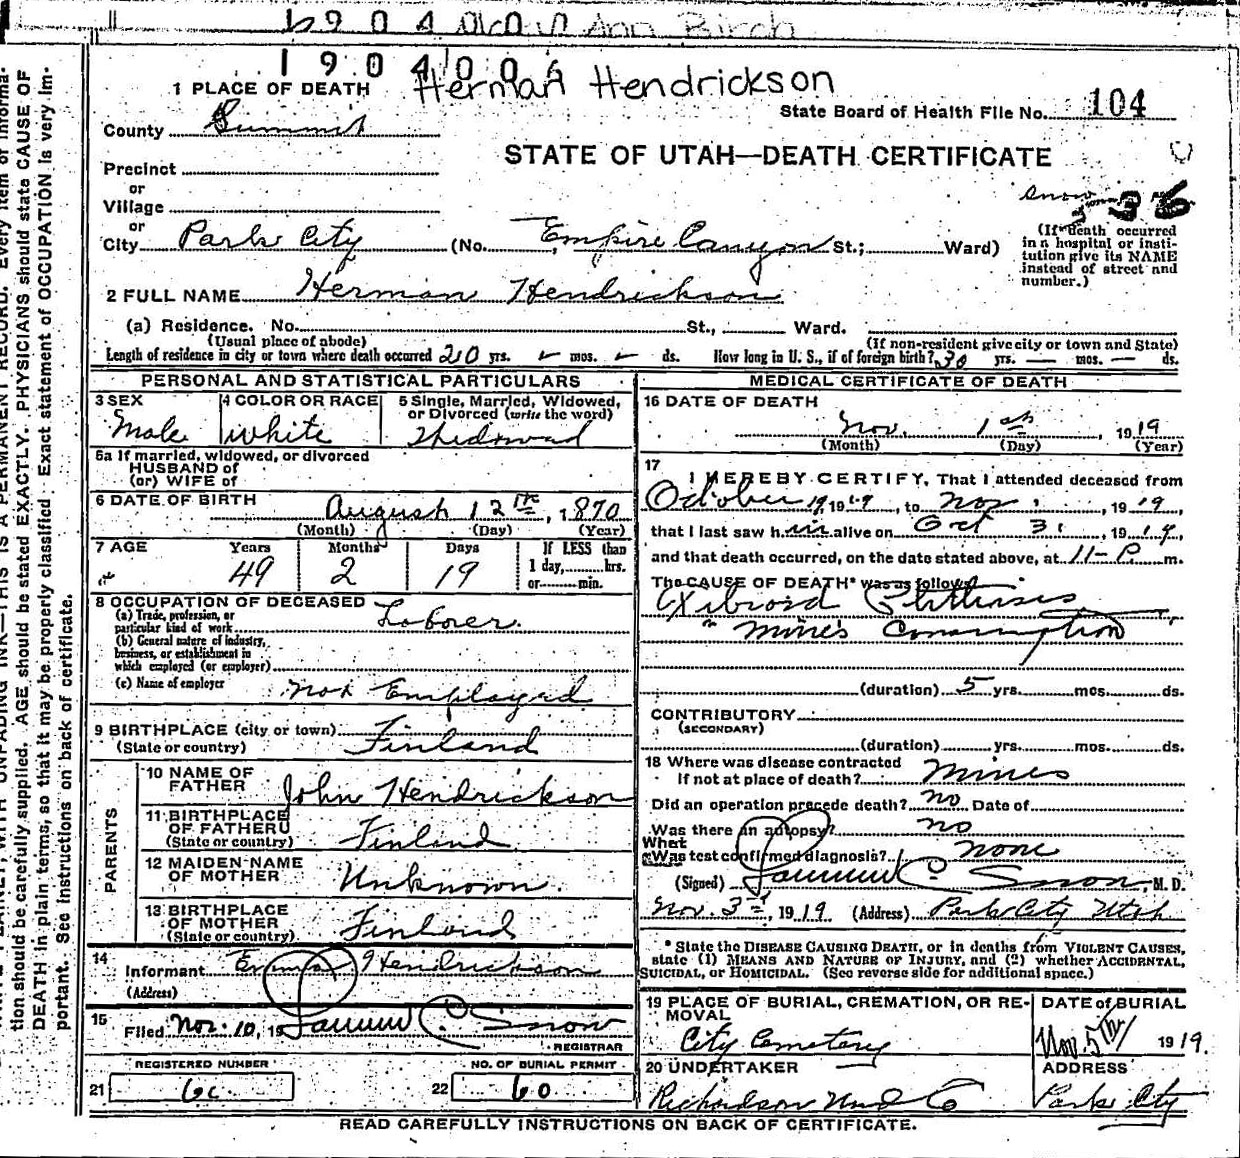 1904 Ann Birch
1904006
Herman Hendrickson
1 PLACE OF DEATH
State Board of Health File No. 104
County Summit
STATE OF UTAH—DEATH CERTIFICATE
Precinct
or
Village
or
Snow
36
City Park City (No. Empire Canyon St.; Ward)
(If death occurred in a hospital or insti- tution give its NAME instead of street and number.)
2 FULL NAME Herman Hendrickson
(a) Residence. No. St., Ward.
(Usual place of abode) (If non-resident give city or town and State)
Length of residence in city or town where death occurred 20 yrs. mos. ds. How long in U. S., if of foreign birth? 30 yrs. — mos. — ds.
PERSONAL AND STATISTICAL PARTICULARS
3 SEX Male
4 COLOR OR RACE white
5 Single, Married, Widowed, or Divorced (write the word)
5a If married, widowed, or divorced
HUSBAND of
(or) WIFE of
6 DATE OF BIRTH August 12th, 1870
(Month) (Day) (Year)
7 AGE Years Months Days If LESS than
49 2 19 1 day, hrs.
or min.
8 OCCUPATION OF DECEASED
(a) Trade, profession, or
particular kind of work Laborer.
(b) General nature of industry,
business, or establishment in
which employed (or employer)
(c) Name of employer not Employed
9 BIRTHPLACE (city or town)
(State or country) Finland
PARENTS
10 NAME OF
FATHER John Hendrickson
11 BIRTHPLACE
OF FATHER
(State or country) Finland
12 MAIDEN NAME
OF MOTHER Unknown.
13 BIRTHPLACE
OF MOTHER
(State or country) Finland
14
Informant Hendrickson
(Address)
15 Filed Nov. 10, 19 C. Snow
REGISTRAR
REGISTERED NUMBER NO. OF BURIAL PERMIT
21 60 22 60
MEDICAL CERTIFICATE OF DEATH
16 DATE OF DEATH
Nov. 1st, 1919
(Month) (Day) (Year)
17
I HEREBY CERTIFY, That I attended deceased from
October 19, 1919, to Nov 1, 1919
that I last saw him alive on Oct 31, 1919,
and that death occurred, on the date stated above, at 11-P.m.
The CAUSE OF DEATH* was as follows:
Phthisis
" Consumption
(duration) 5 yrs. mos. ds.
CONTRIBUTORY
(SECONDARY)
(duration) yrs. mos. ds.
18 Where was disease contracted
If not at place of death? Mines
Did an operation precede death? no Date of
Was there an autopsy? no
What
Was test confirmed diagnosis? none
(Signed) C. Snow, M. D.
Nov. 3rd, 1919 (Address) Park City Utah
* State the DISEASE CAUSING DEATH, or in deaths from VIOLENT CAUSES,
state (1) MEANS AND NATURE OF INJURY, and (2) whether ACCIDENTAL,
SUICIDAL, or HOMICIDAL. (See reverse side for additional space.)
19 PLACE OF BURIAL, CREMATION, OR RE-
MOVAL City Cemetery
DATE of BURIAL
Nov. 5th 1919.
20 UNDERTAKER
Richardson Und Co
ADDRESS
Park City
READ CAREFULLY INSTRUCTIONS ON BACK OF CERTIFICATE.
THIS IS A PERMANENT RECORD. Every item of informa-
tion should be carefully supplied. AGE should be stated EXACTLY. PHYSICIANS should state CAUSE OF
DEATH in plain terms, so that it may be properly classified. Exact statement of OCCUPATION is very im-
portant. See instructions on back of certificate.